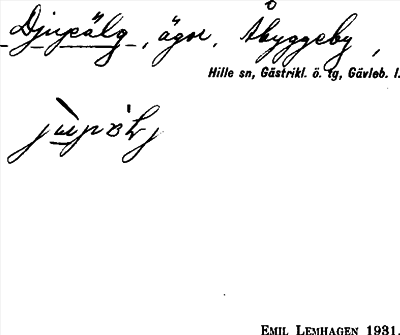 Djupälg, ägor, Åbyggeby,
Hille sn, Gästrikl. ö. tg, Gävleb. l.
EMIL LEMHAGEN 1931.